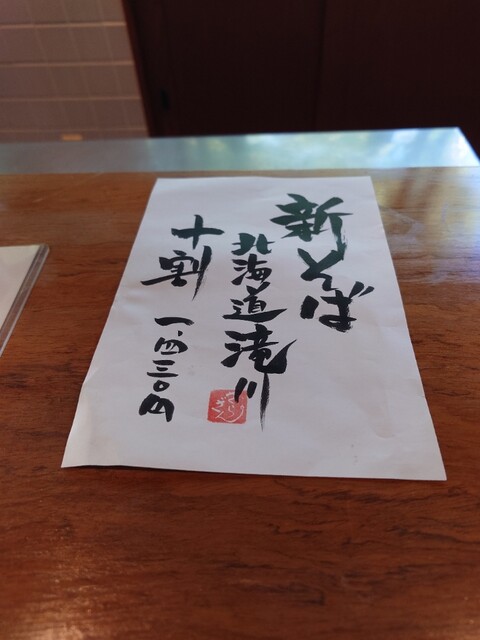 新そば
北海道滝川
十割
一、四三〇円